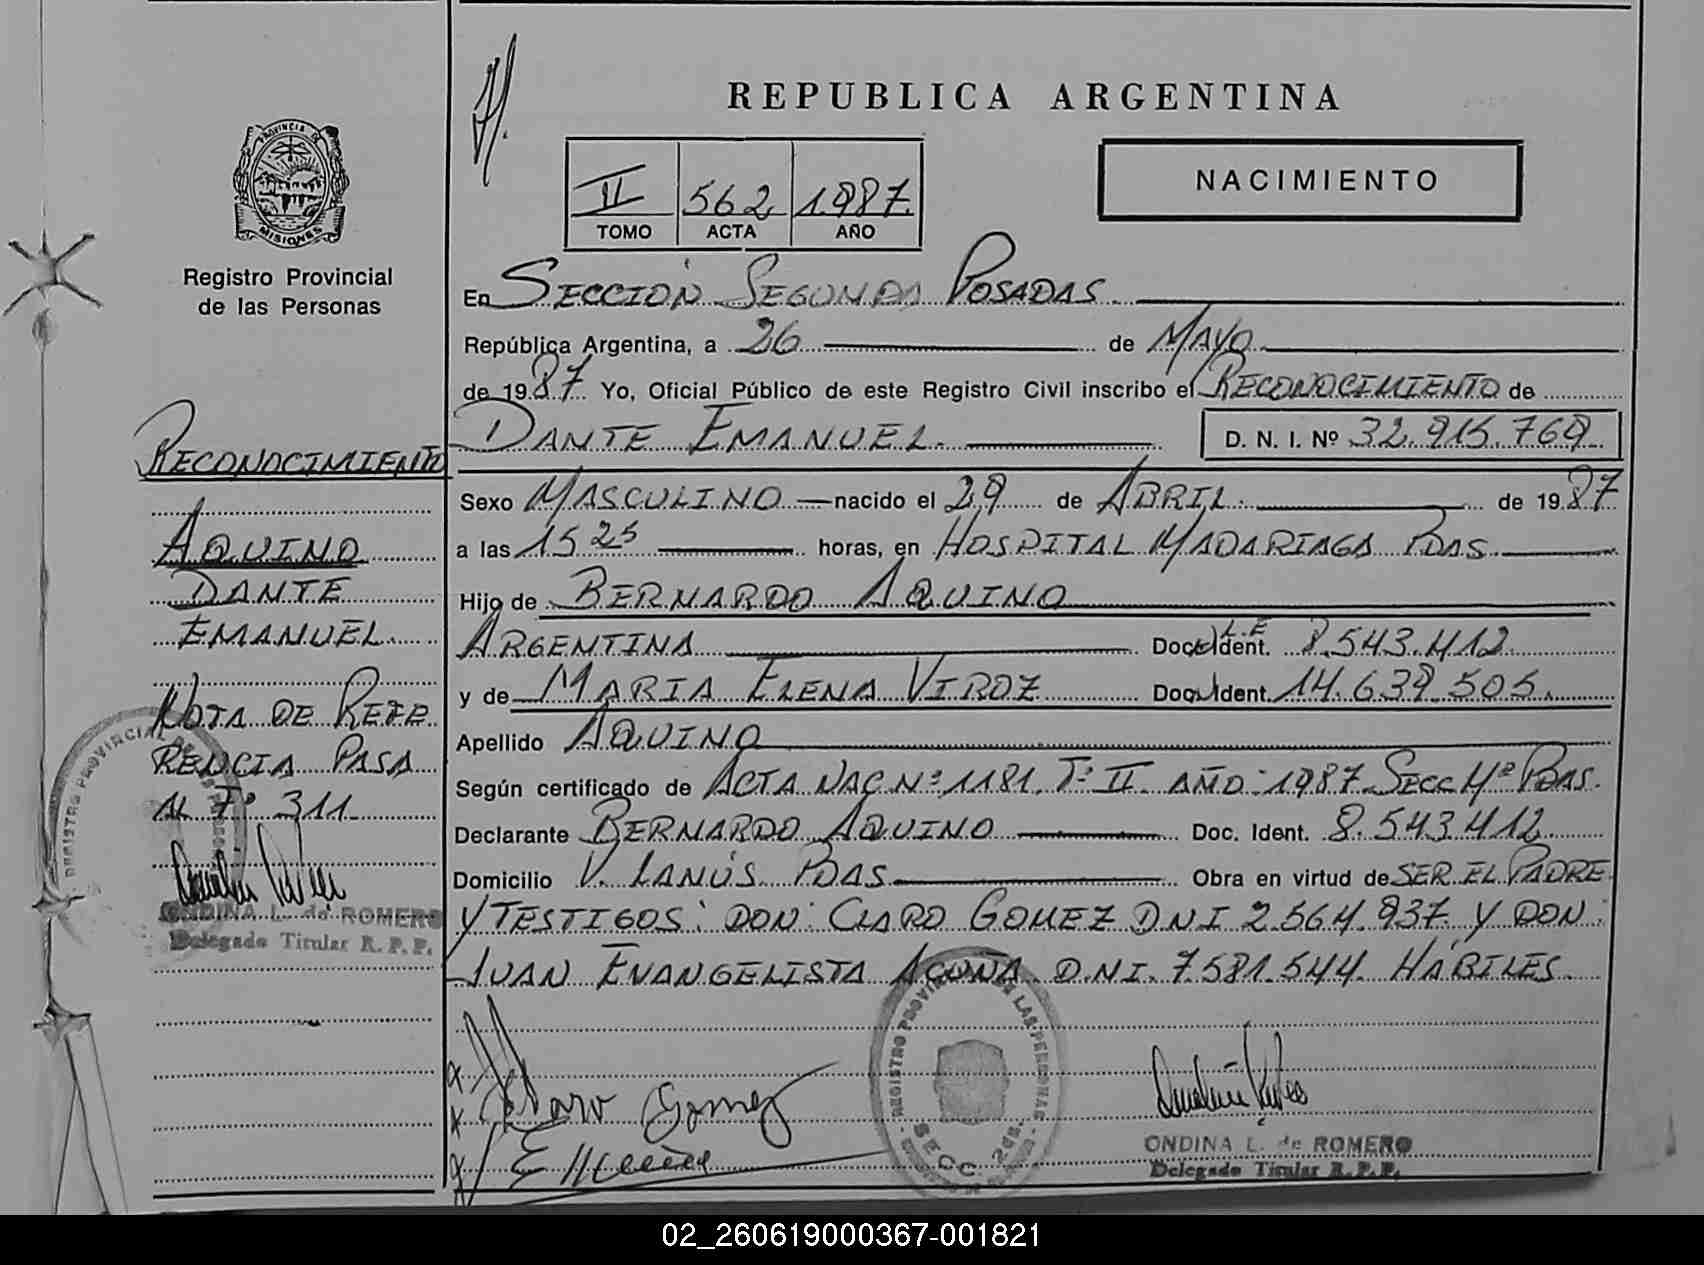 REPUBLICA ARGENTINA
PROVINCIA DE
MISIONES
Registro Provincial
de las Personas
II 562 1987.
TOMO ACTA AÑO
NACIMIENTO
En SECCIÓN SEGUNDA POSADAS.
República Argentina, a 26 de MAYO
de 1987. Yo, Oficial Público de este Registro Civil inscribo el RECONOCIMIENTO de
DANTE EMANUEL. D. N. I. Nº 32.915.769
Sexo MASCULINO nacido el 29 de ABRIL de 1987
a las 15 25 horas, en HOSPITAL MADARIAGA PDAS
Hijo de BERNARDO AQUINO
ARGENTINA Doc. Ident. L.E 8.543.412
y de MARIA ELENA VIROZ Doc. Ident. 14.639.505.
Apellido AQUINO
Según certificado de ACTA NAC Nº 1181 Tº II AÑO 1987 SECC 4ª PDAS.
Declarante BERNARDO AQUINO Doc. Ident. 8.543.412
Domicilio V. LANÚS PDAS Obra en virtud de SER EL PADRE
Y TESTIGOS: DON: CLARO GOMEZ DNI 2.564.937 Y DON:
JUAN EVANGELISTA ACUÑA D.N.I. 7.581.544. HÁBILES.
RECONOCIMIENTO
AQUINO
DANTE
EMANUEL.
NOTA DE REFE
RENCIA PASA
AL Fº 311
ONDINA L. de ROMERO
Delegado Titular R. P. P.
Claro Gomez
REGISTRO PROVINCIAL DE LAS PERSONAS
SECC. 2da.
ONDINA L. de ROMERO
Delegado Titular R. P. P.
02_260619000367-001821